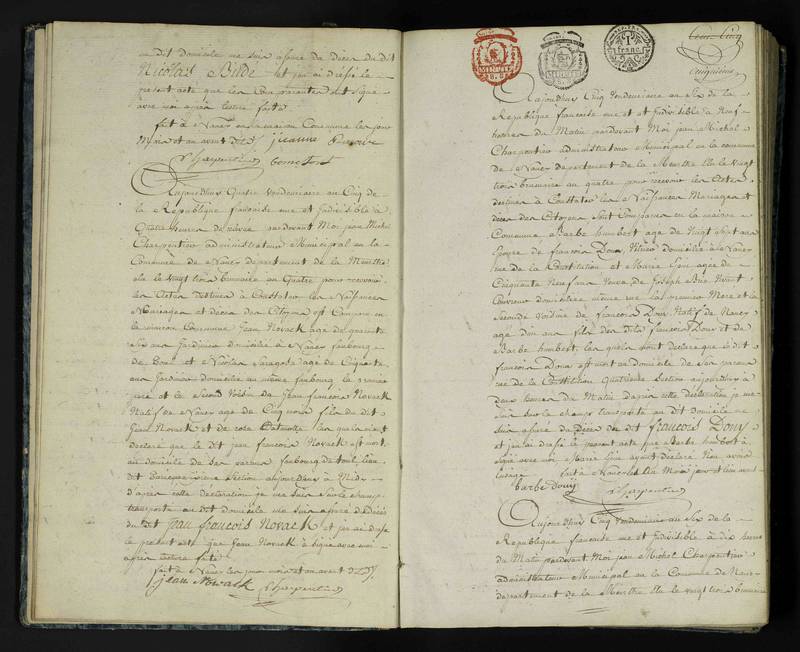 au dit domicile me suis assuré du Décès du dit
Nicolas Bilde et j'ai dressé le
présent acte que les Comparants ont signé
avec moi après lecture faite
fait à Nancy en la maison Commune les jour
Mois et an avant Dits jeanne
J Charpentier
Aujourdhui Quatre Vendemiaire an Cinq de
la République francoise une et Indivisible à
Quatre heures de relevée pardevant Moi jean Michel
Charpentier administrateur Municipal en la
Commune de Nancy département de la Meurthe
élu le vingt trois brumaire an Quatre pour recevoir
les Actes destinés à Constater les Naissances
Mariages et décès des Citoyens est Comparu en
la maison Commune Jean Novack agé de quarante
six ans Jardinier domicilié à Nancy faubourg
de et Nicolas agé de Cinquante
ans Jardinier domicilié au même faubourg le premier
père et le Second Voisin de Jean francois Novack
Natif de Nancy agé de Cinq mois fils du dit
Jean Novack et de les quels m'ont
declaré que le dit jean francois Novack est mort
au domicile de ses parens faubourg
dit Section aujourdhui à Midi
d'après cette declaration je me suis sur le champ
transporté au dit domicile me suis assuré du Décès
du dit jean francois Novack et j'ai dressé
le présent acte que Jean Novack a signé avec moi
après lecture faite
fait à Nancy les jour mois et an avant Dits
jean Nowack J Charpentier
1
franc
Aujourdhui Cinq Vendemiaire an Six de la
République francoise une et Indivisible à Neuf
heures du Matin pardevant Moi jean Michel
Charpentier administrateur Municipal en la commune
de Nancy département de la Meurthe élu le vingt
trois brumaire an quatre pour recevoir les Actes
destinés à Constater les Naissances Mariages et
décès des Citoyens sont Comparus en la maison
Commune Barbe humbert agée de Vingt Sept ans
Epouse de francois Douy, domicilié à Nancy
rue de la Constitution et Marie agée de
Cinquante Neuf ans Veuve de Joseph
domiciliée même rue la premiere Mere et la
Seconde Voisine de francois Douy Natif de Nancy
agé d'un an fils des dits francois Douy et de
Barbe humbert, les quelles m'ont declaré que le dit
francois Douy est mort au domicile de ses parens
rue de la Constitution Quatrieme Section aujourdhui à
Deux heures du Matin d'après cette declaration je me
suis sur le champ transporté au dit domicile me
suis assuré du Décès du dit francois Douy
et j'ai dressé le présent acte que Barbe humbert à
signé avec moi Marie ayant declaré n'en avoir
l'usage fait à Nancy les Mois jour et an avant
barbe Douy J Charpentier
Aujourdhui Cinq Vendemiaire an Six de la
République francoise une et Indivisible à dix heures
du Matin pardevant Moi jean Michel Charpentier
administrateur Municipal en la Commune de Nancy
département de la Meurthe élu le vingt trois brumaire